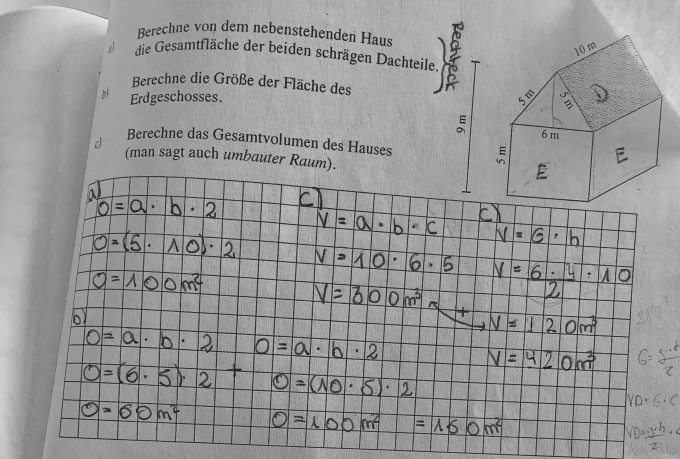 a) Berechne von dem nebenstehenden Haus
die Gesamtfläche der beiden schrägen Dachteile.
Rechteck
b) Berechne die Größe der Fläche des
Erdgeschosses.
c) Berechne das Gesamtvolumen des Hauses
(man sagt auch umbauter Raum).
9 m
10 m
5 m
5 m
D
6 m
5 m
E
E
a)
O = a · b · 2
O = (5 · 10) · 2
O = 100 m²
c)
V = a · b · c
V = 10 · 6 · 5
V = 300 m³
+
c)
V = G · h
V = 6 · 4 · 10
2
V = 120 m³
V = 420 m³
b)
O = a · b · 2
O = (6 · 5) · 2 +
O = 60 m²
O = a · b · 2
O = (10 · 5) · 2
O = 100 m² = 160 m²
VD = G · C